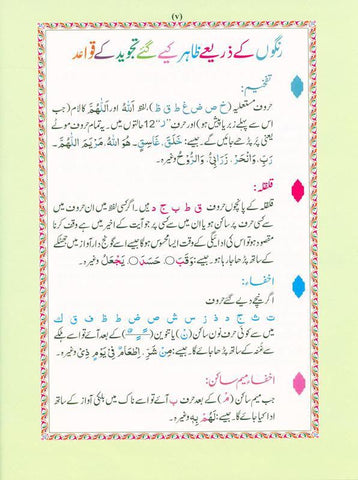 (۷)
رنگوں کے ذریعے ظاہر کیے گئے تجوید کے قواعد
تفخیم:
حروف مستعلیہ (خ ص ض غ ط ق ظ)، لفظ اَللّٰهُ اور اَللّٰهُمَّ کا لام (جب
اس سے پہلے زبر یا پیش ہو) اور حرف "ر" 12 حالتوں میں۔ یہ تمام حروف موٹے
یعنی پُر پڑھے جائیں گے۔ جیسے: خَلَقَ، غَاسِقٍ۔ هُوَ اللّٰهُ، مَرْيَمَ اللّٰهُمَّ۔
رَبِّ، وَانْحَرْ، نَرَانِيْ، وَالرُّوْحُ وغیرہ۔
قلقلہ:
قلقلہ کے پانچوں حروف ق ط ب ج د ہیں۔ اگر کسی لفظ میں ان حروف میں
سے کسی حرف پر ساکن ہو یا ان میں سے کسی پر جو آیت کے اخیر میں ہے وقف کرنا
مقصود ہو تو اس کی ادائیگی کے وقت ایسا محسوس ہوگا جیسے اسے گونج دار آواز میں جھٹکے
کے ساتھ پڑھا جا رہا ہو۔ جیسے: وَقَبَ، حَسَدَ، يَجْعَلُ وغیرہ۔
اخفاء:
اگر نیچے دیے گئے حروف
ت ث ج د ذ ز س ش ص ض ط ظ ف ق ك
میں سے کوئی حرف نون ساکن (نْ) یا تنوین کے بعد آئے تو اسے ہلکے
سے غنہ کے ساتھ پڑھا جائے گا۔ جیسے: مِنْ شَرِّ، اِطْعَامٌ فِيْ يَوْمٍ ذِيْ وغیرہ۔
اخفاء میم ساکن:
جب میم ساکن (مْ) کے بعد حرف ب آئے تو اسے ناک میں ہلکی آواز کے ساتھ
ادا کیا جائے گا۔ جیسے: لَهُمْ بِهٖ وغیرہ۔